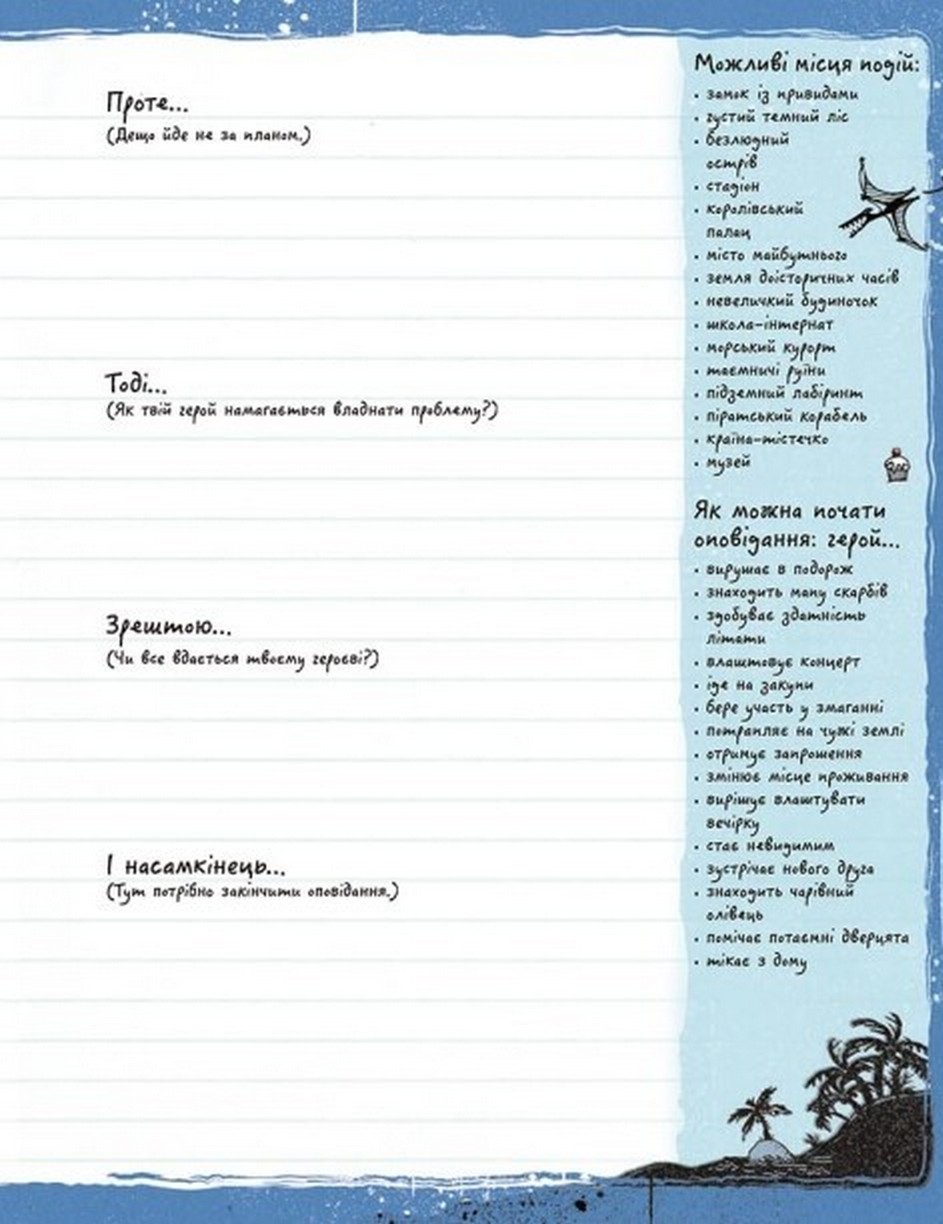 Проте...
(Дещо йде не за планом.)
Тоді...
(Як твій герой намагається владнати проблему?)
Зрештою...
(Чи все вдасться твоєму героєві?)
І насамкінець...
(Тут потрібно закінчити оповідання.)
Можливі місця подій:
• замок із привидами
• густий темний ліс
• безлюдний
острів
• стадіон
• королівський
палац
• місто майбутнього
• земля доісторичних часів
• невеличкий будиночок
• школа-інтернат
• морський курорт
• таємничі руїни
• підземний лабіринт
• піратський корабель
• країна-містечко
• музей
Як можна почати
оповідання: герой...
• вирушає в подорож
• знаходить мапу скарбів
• здобуває здатність
літати
• влаштовує концерт
• іде на закупи
• бере участь у змаганні
• потрапляє на чужі землі
• отримує запрошення
• змінює місце проживання
• вирішує влаштувати
вечірку
• стає невидимим
• зустрічає нового друга
• знаходить чарівний
олівець
• помічає потаємні дверцята
• тікає з дому